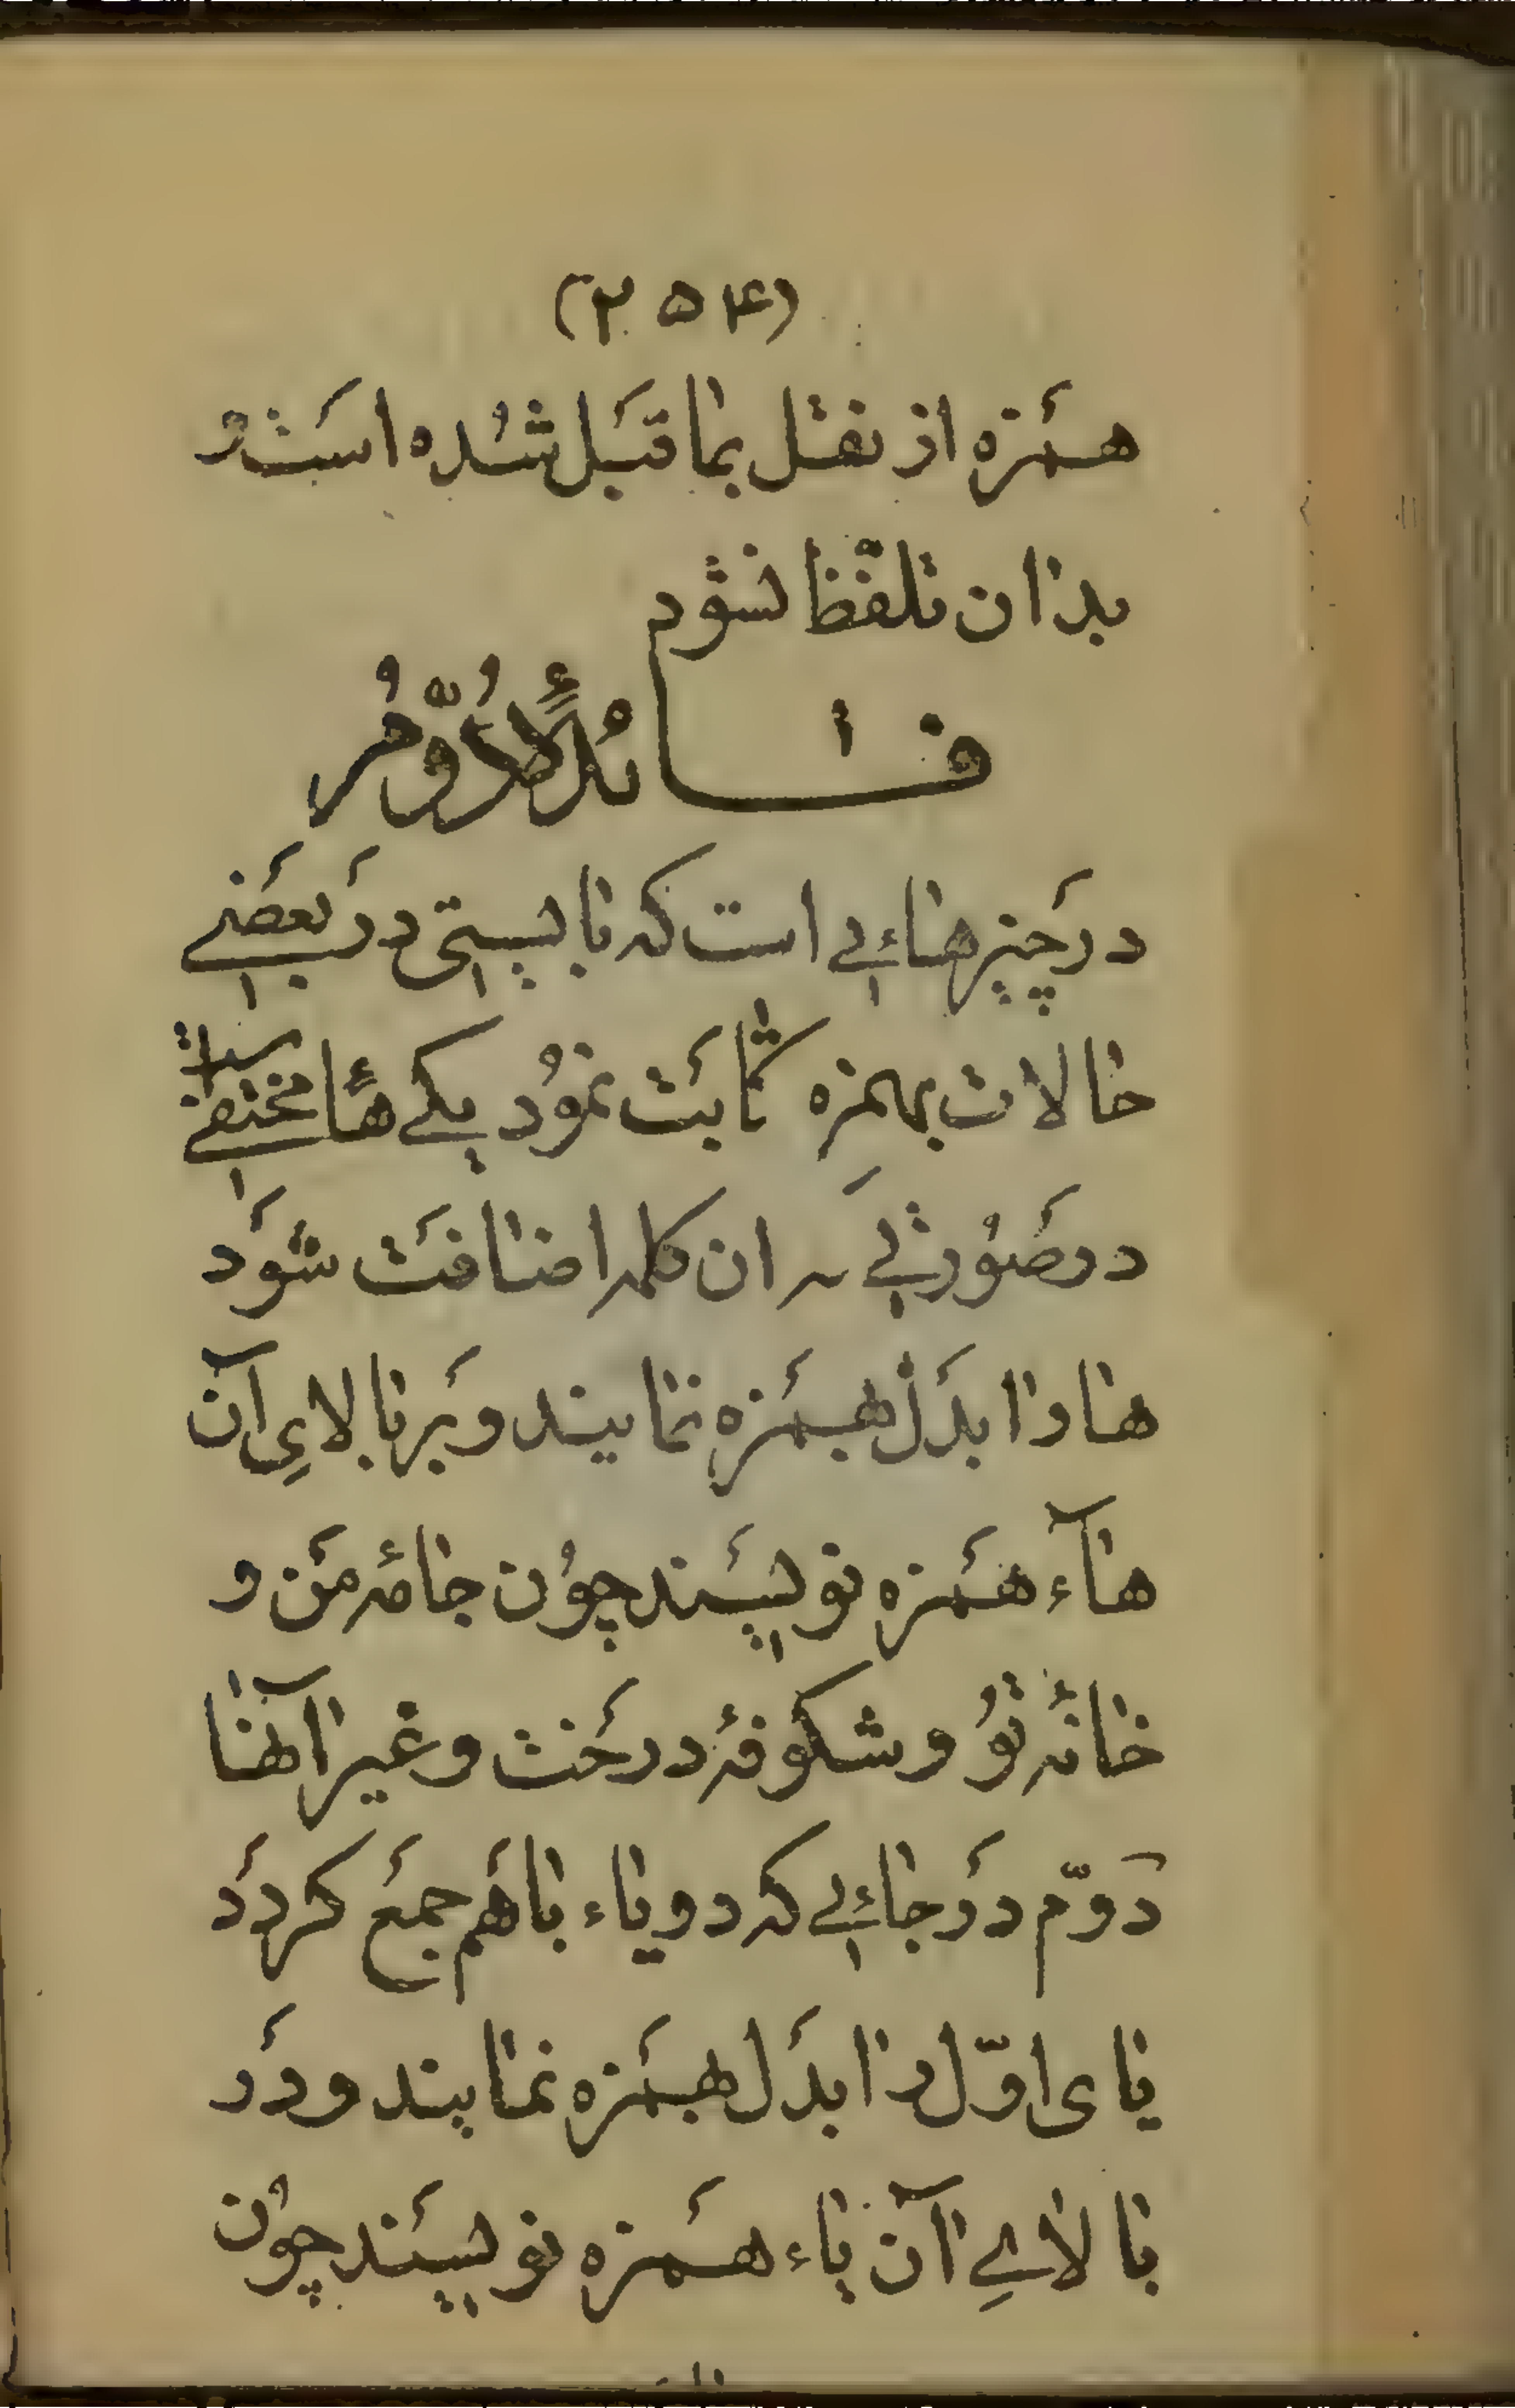 (۲۵۴)
هَمزه از نقل بماقبَل شُده است و
بدان تلفّظ نشود
فائدهٔ دُوّمُ
در چیزهائی است که بایستی دَر بعَضی
حالات بهمزه ثابَت نموُد یکی هاء مختفی است
در صَوُرتی که ان کلمه اضافَت شوَد
ها را بدَل بهمَزه نمایند و بَر بالایِ آن
هآء هَمَزه نویسَند چوُن جامهٔ مَن و
خانهٔ توُ و شکوفهٔ درَخت و غیر آنها
دوّم دَر جائی که دو یاء باهَم جمَع کردَد
یای اوّل را بدَل بهمَزه نمایند و دَر
بالایِ آن یاء همَزه نویسَند چوُن